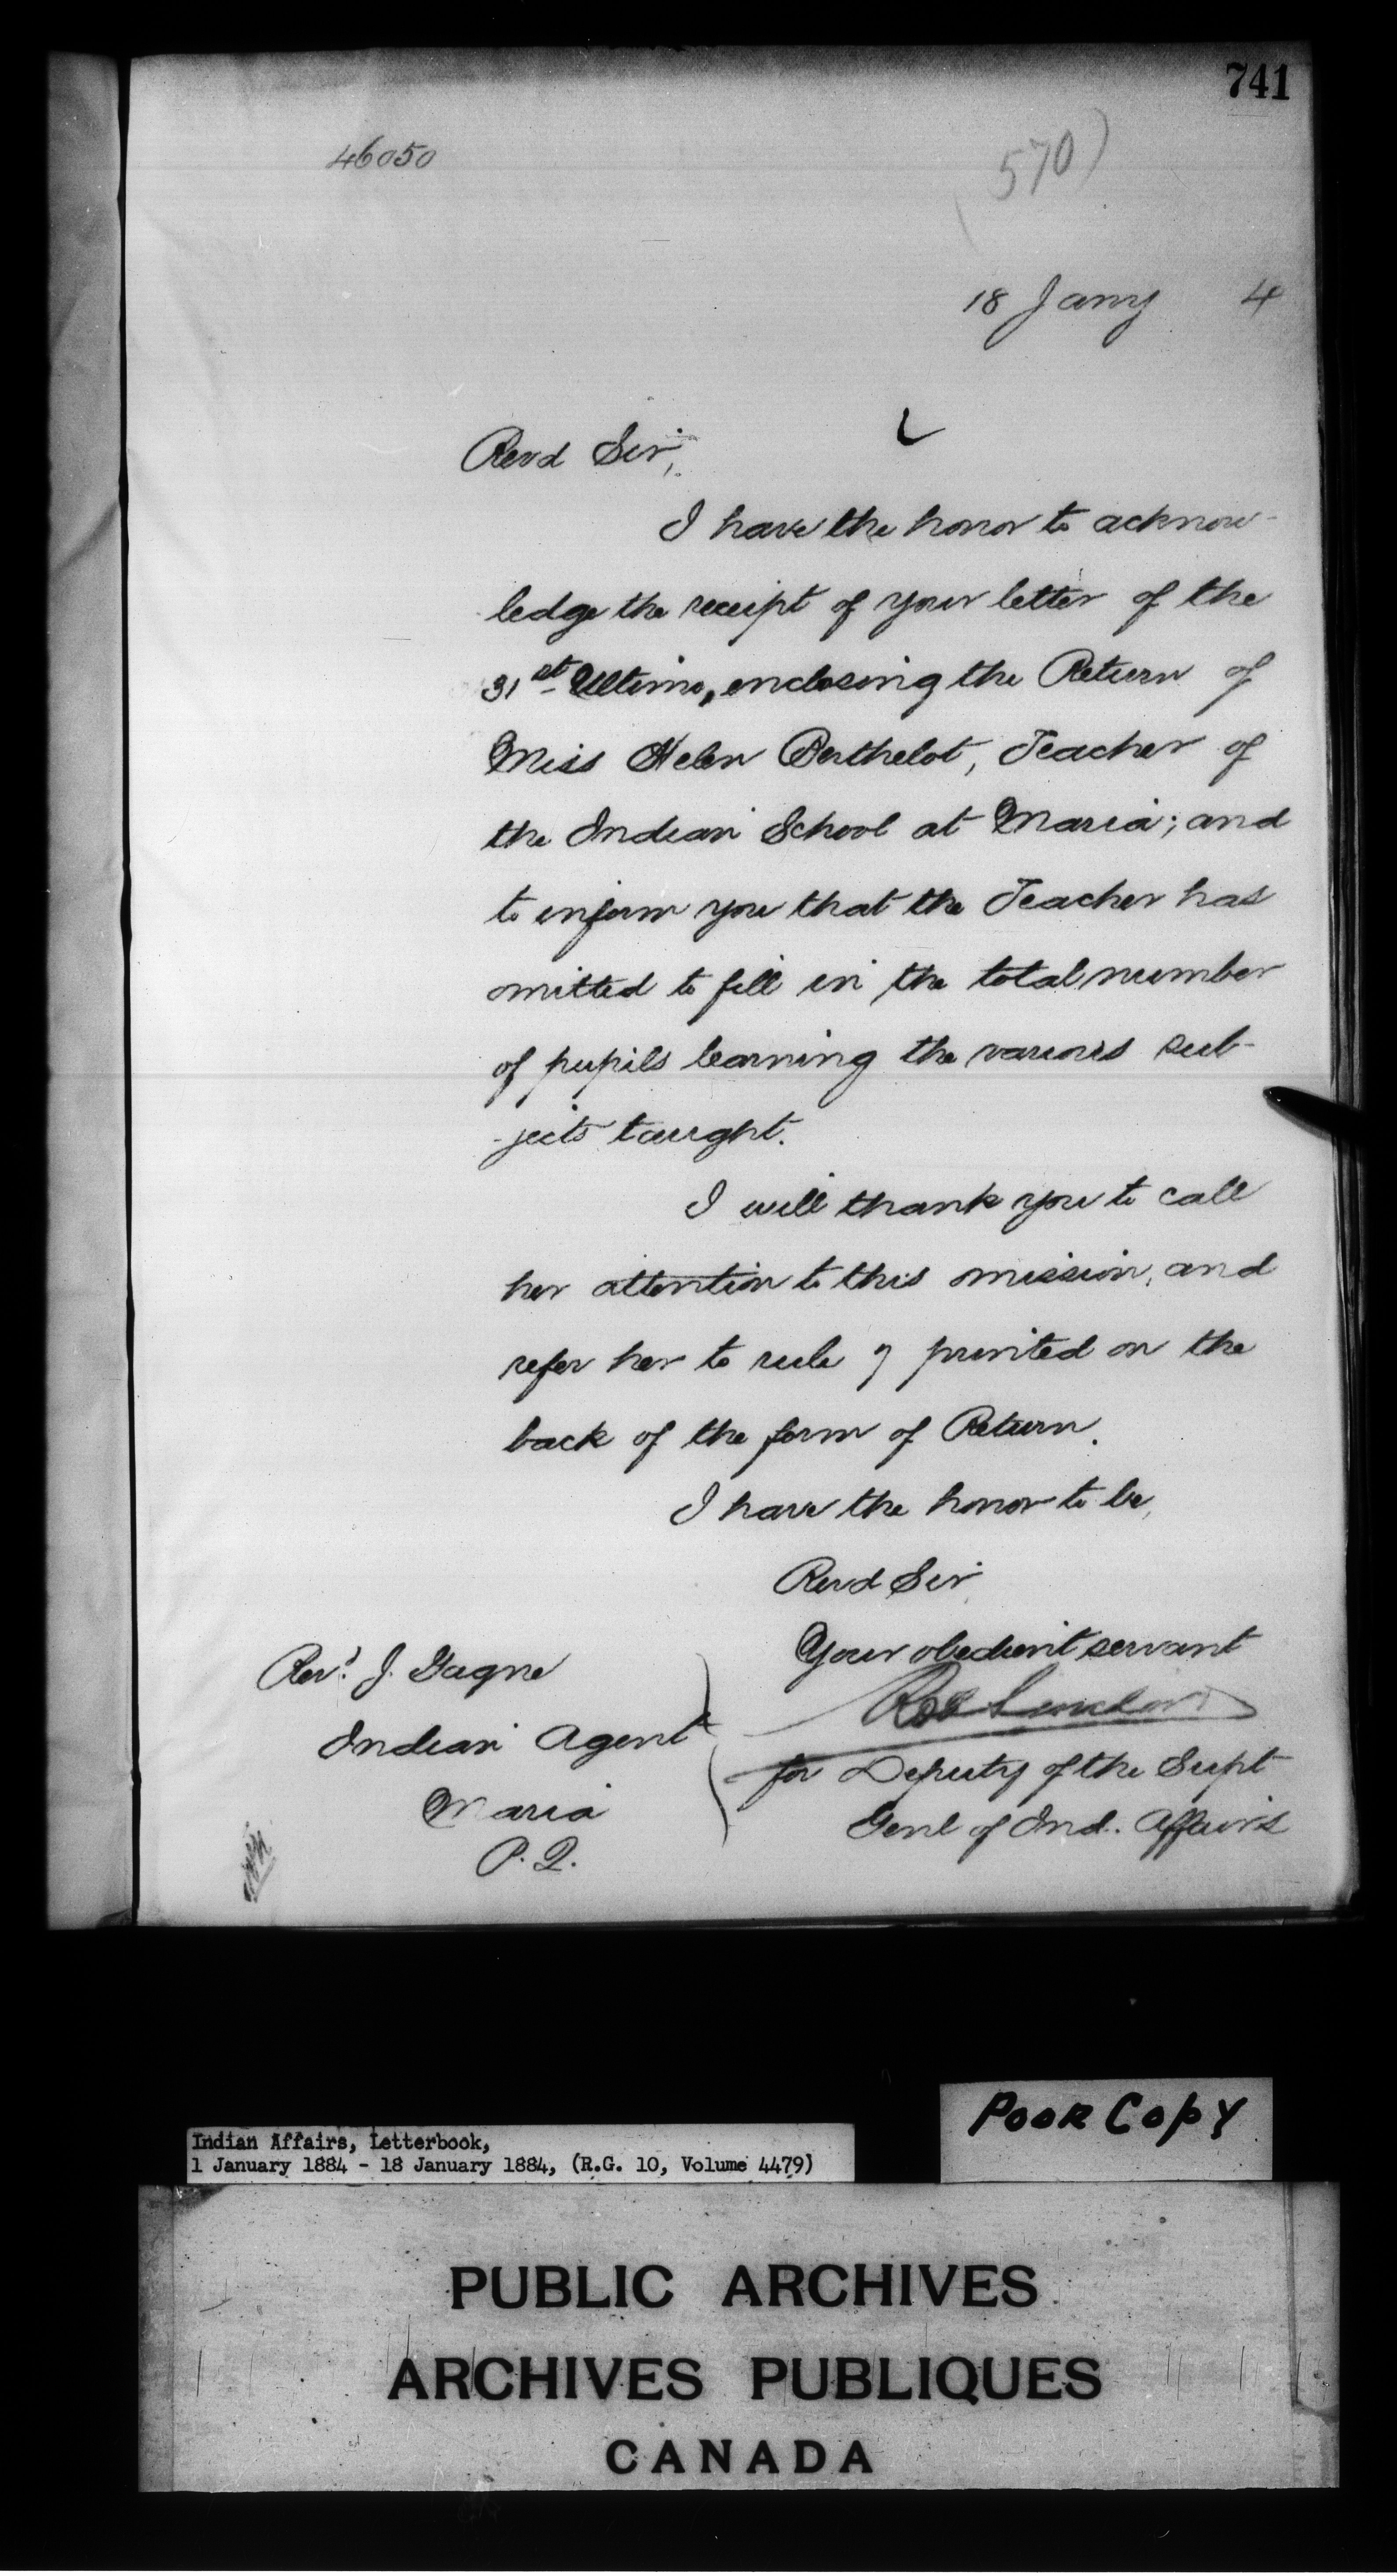 741
46050
570)
18 Jany 4
Revd Sir,
I have the honor to acknow-
ledge the receipt of your letter of the
31st Ultimo, enclosing the Return of
Miss Helen Berthelot, Teacher of
the Indian School at Maria; and
to inform you that the Teacher has
omitted to fill in the total number
of pupils learning the various sub-
-jects taught.
I will thank you to call
her attention to this omission, and
refer her to rule 7 printed on the
back of the form of Return.
I have the honor to be,
Revd Sir
Your obedient servant
for Deputy of the Supt
Genl of Ind. Affairs
Revd J. Gagne
Indian Agent
Maria
P.Q.
Poor Copy
Indian Affairs, Letterbook,
1 January 1884 - 18 January 1884, (R.G. 10, Volume 4479)
PUBLIC ARCHIVES
ARCHIVES PUBLIQUES
CANADA